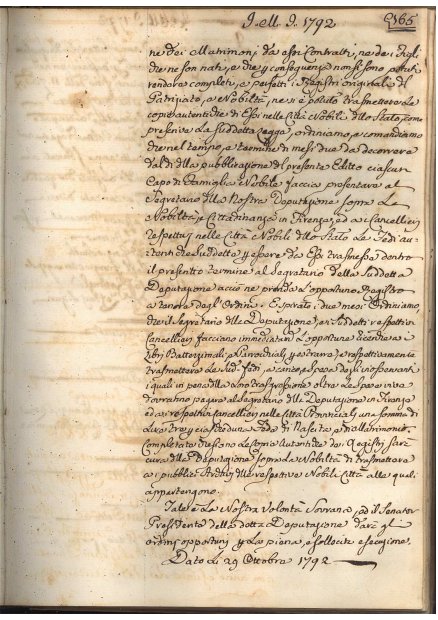 J. M. J. 1792
165
ne dei Matrimonj da essi Contratti, ne dei figli
che ne son nati, e che p conseguenza non si sono potuti
rendere completi, e perfetti i Registri originali del
Patriziato, e Nobiltà, ne si è potuto trasmettere le
copie autentiche di Essi nelle Città Nobili dllo Stato, come
prescrive La suddetta Legge, ordiniamo, e comandiamo
che nel tempo, e termine di mesi due da decorrere
dal dì dlla pubblicazione del presente Editto ciascun
Capo di Famiglia Nobile faccia presentare al
Segretario dlla Nostra Deputazione sopra La
Nobiltà, e Cittadinanza in Firenze, ed ai Cancellieri
respettivi nelle Città Nobili dllo Stato Le Fedi au-
tentiche suddette p essere da Essi trasmesse dentro
il presente termine al Segretario della Suddetta
Deputazione acciò ne prenda l'opportuno Registro
a tenore degl'Ordini. Espirati i due mesi Ordiniamo,
che il Segretario dlla Deputazione, ed i Suddetti respettivi
Cancellieri facciano immediatam l'opportune diligenze ai
Libri Battesimali, e Parrocchiali p estrarre, e respettivamente
trasmettere Le sudd. fedi, a carico, e spese degli inosservanti
i quali in pena dlla Loro trasgressione oltre Le spese vive
dovranno pagare al Segretario dlla Deputazione in Firenze
ed ai respettivi Cancellieri nelle Città Provinciali una somma di
Lire tre p ciascheduna Fede di Nascita, e di Matrimonio.
Completate che siano Le copie Autentiche dei Registri sarà
cura dlla Deputazione sopra La Nobiltà di trasmetterle
ai pubblici Archivj dlle respettive Nobili Città alle quali
appartengono.
Tale è La Nostra Volontà Sovrana, ed il Senator
Presidente della detta Deputazione darà gl'
ordini opportuni p La piena, e sollecita esecuzione.
Dato Li 29 Ottobre 1792